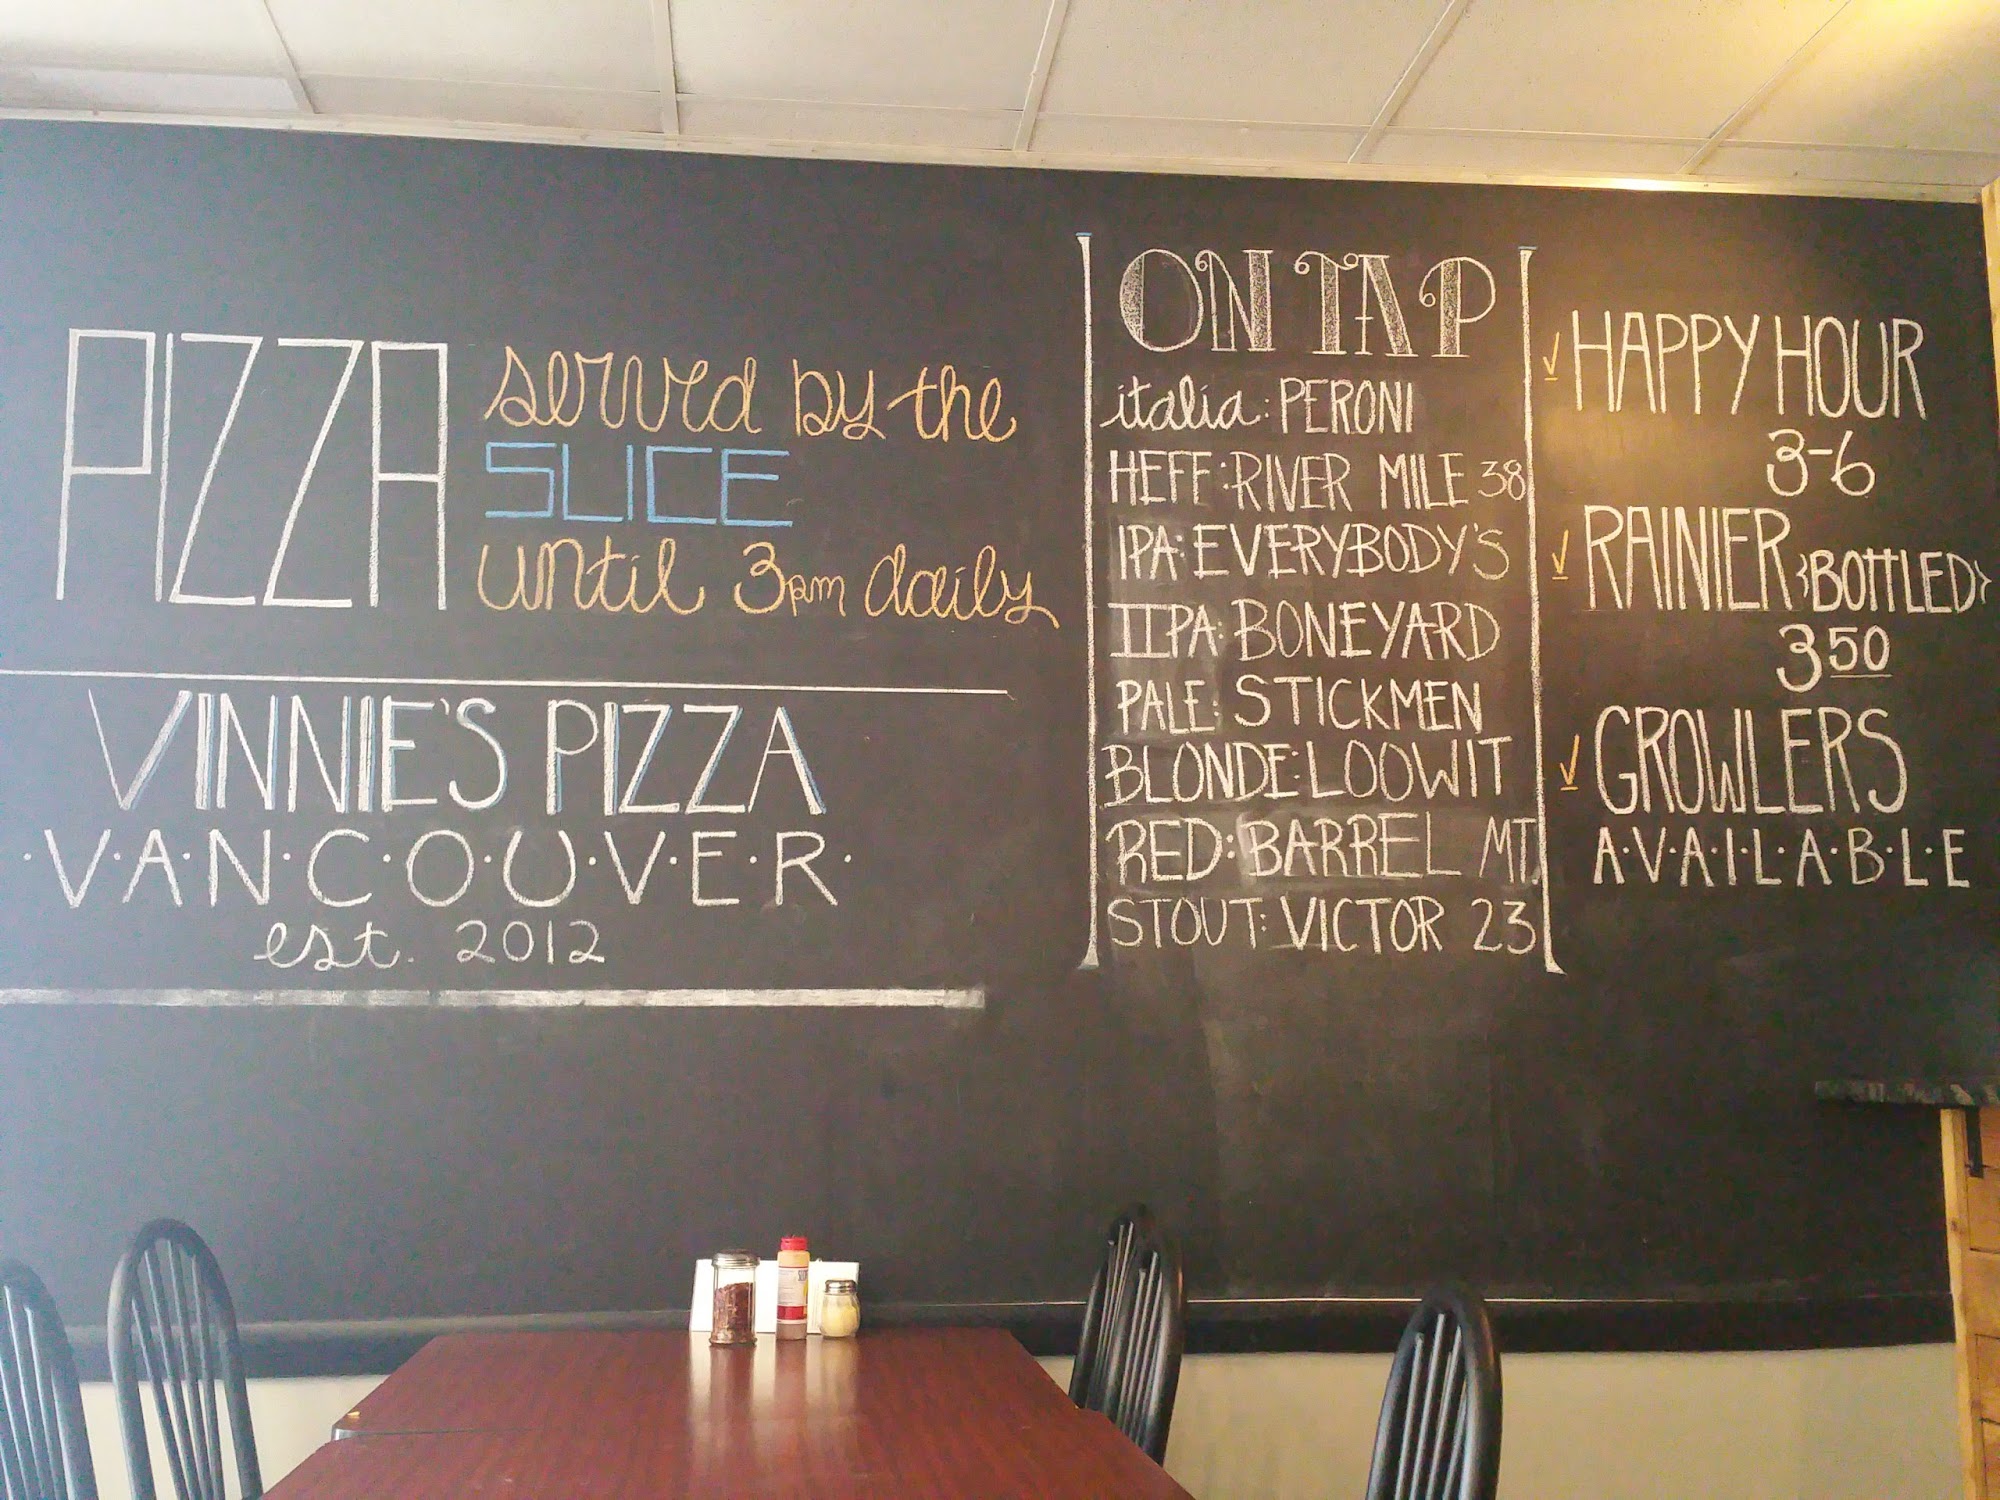 PIZZA
served by the
SLICE
until 3pm daily
VINNIE'S PIZZA
·V·A·N·C·O·U·V·E·R·
est. 2012
ON TAP
italia: PERONI
HEFF: RIVER MILE 38
IPA: EVERYBODY'S
IIPA: BONEYARD
PALE: STICKMEN
BLONDE: LOOWIT
RED: BARREL MT.
STOUT: VICTOR 23
HAPPY HOUR
3-6
RAINIER {BOTTLED}
3 50
GROWLERS
A·V·A·I·L·A·B·L·E